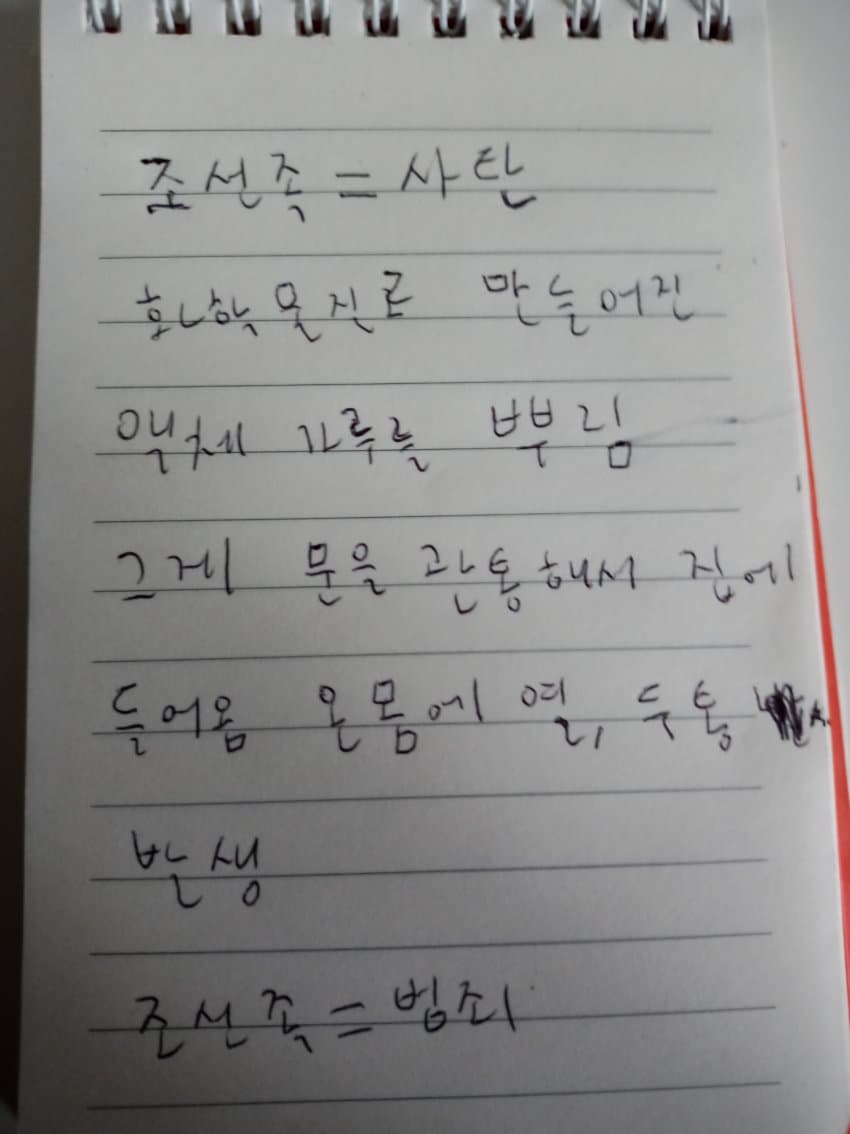 조선족=사탄
화학물진로 만들어진
액체 가루를 뿌림
그게 문을 관통해서 집에
들어옴 온몸에 열, 두통
발생
조선족=범죄